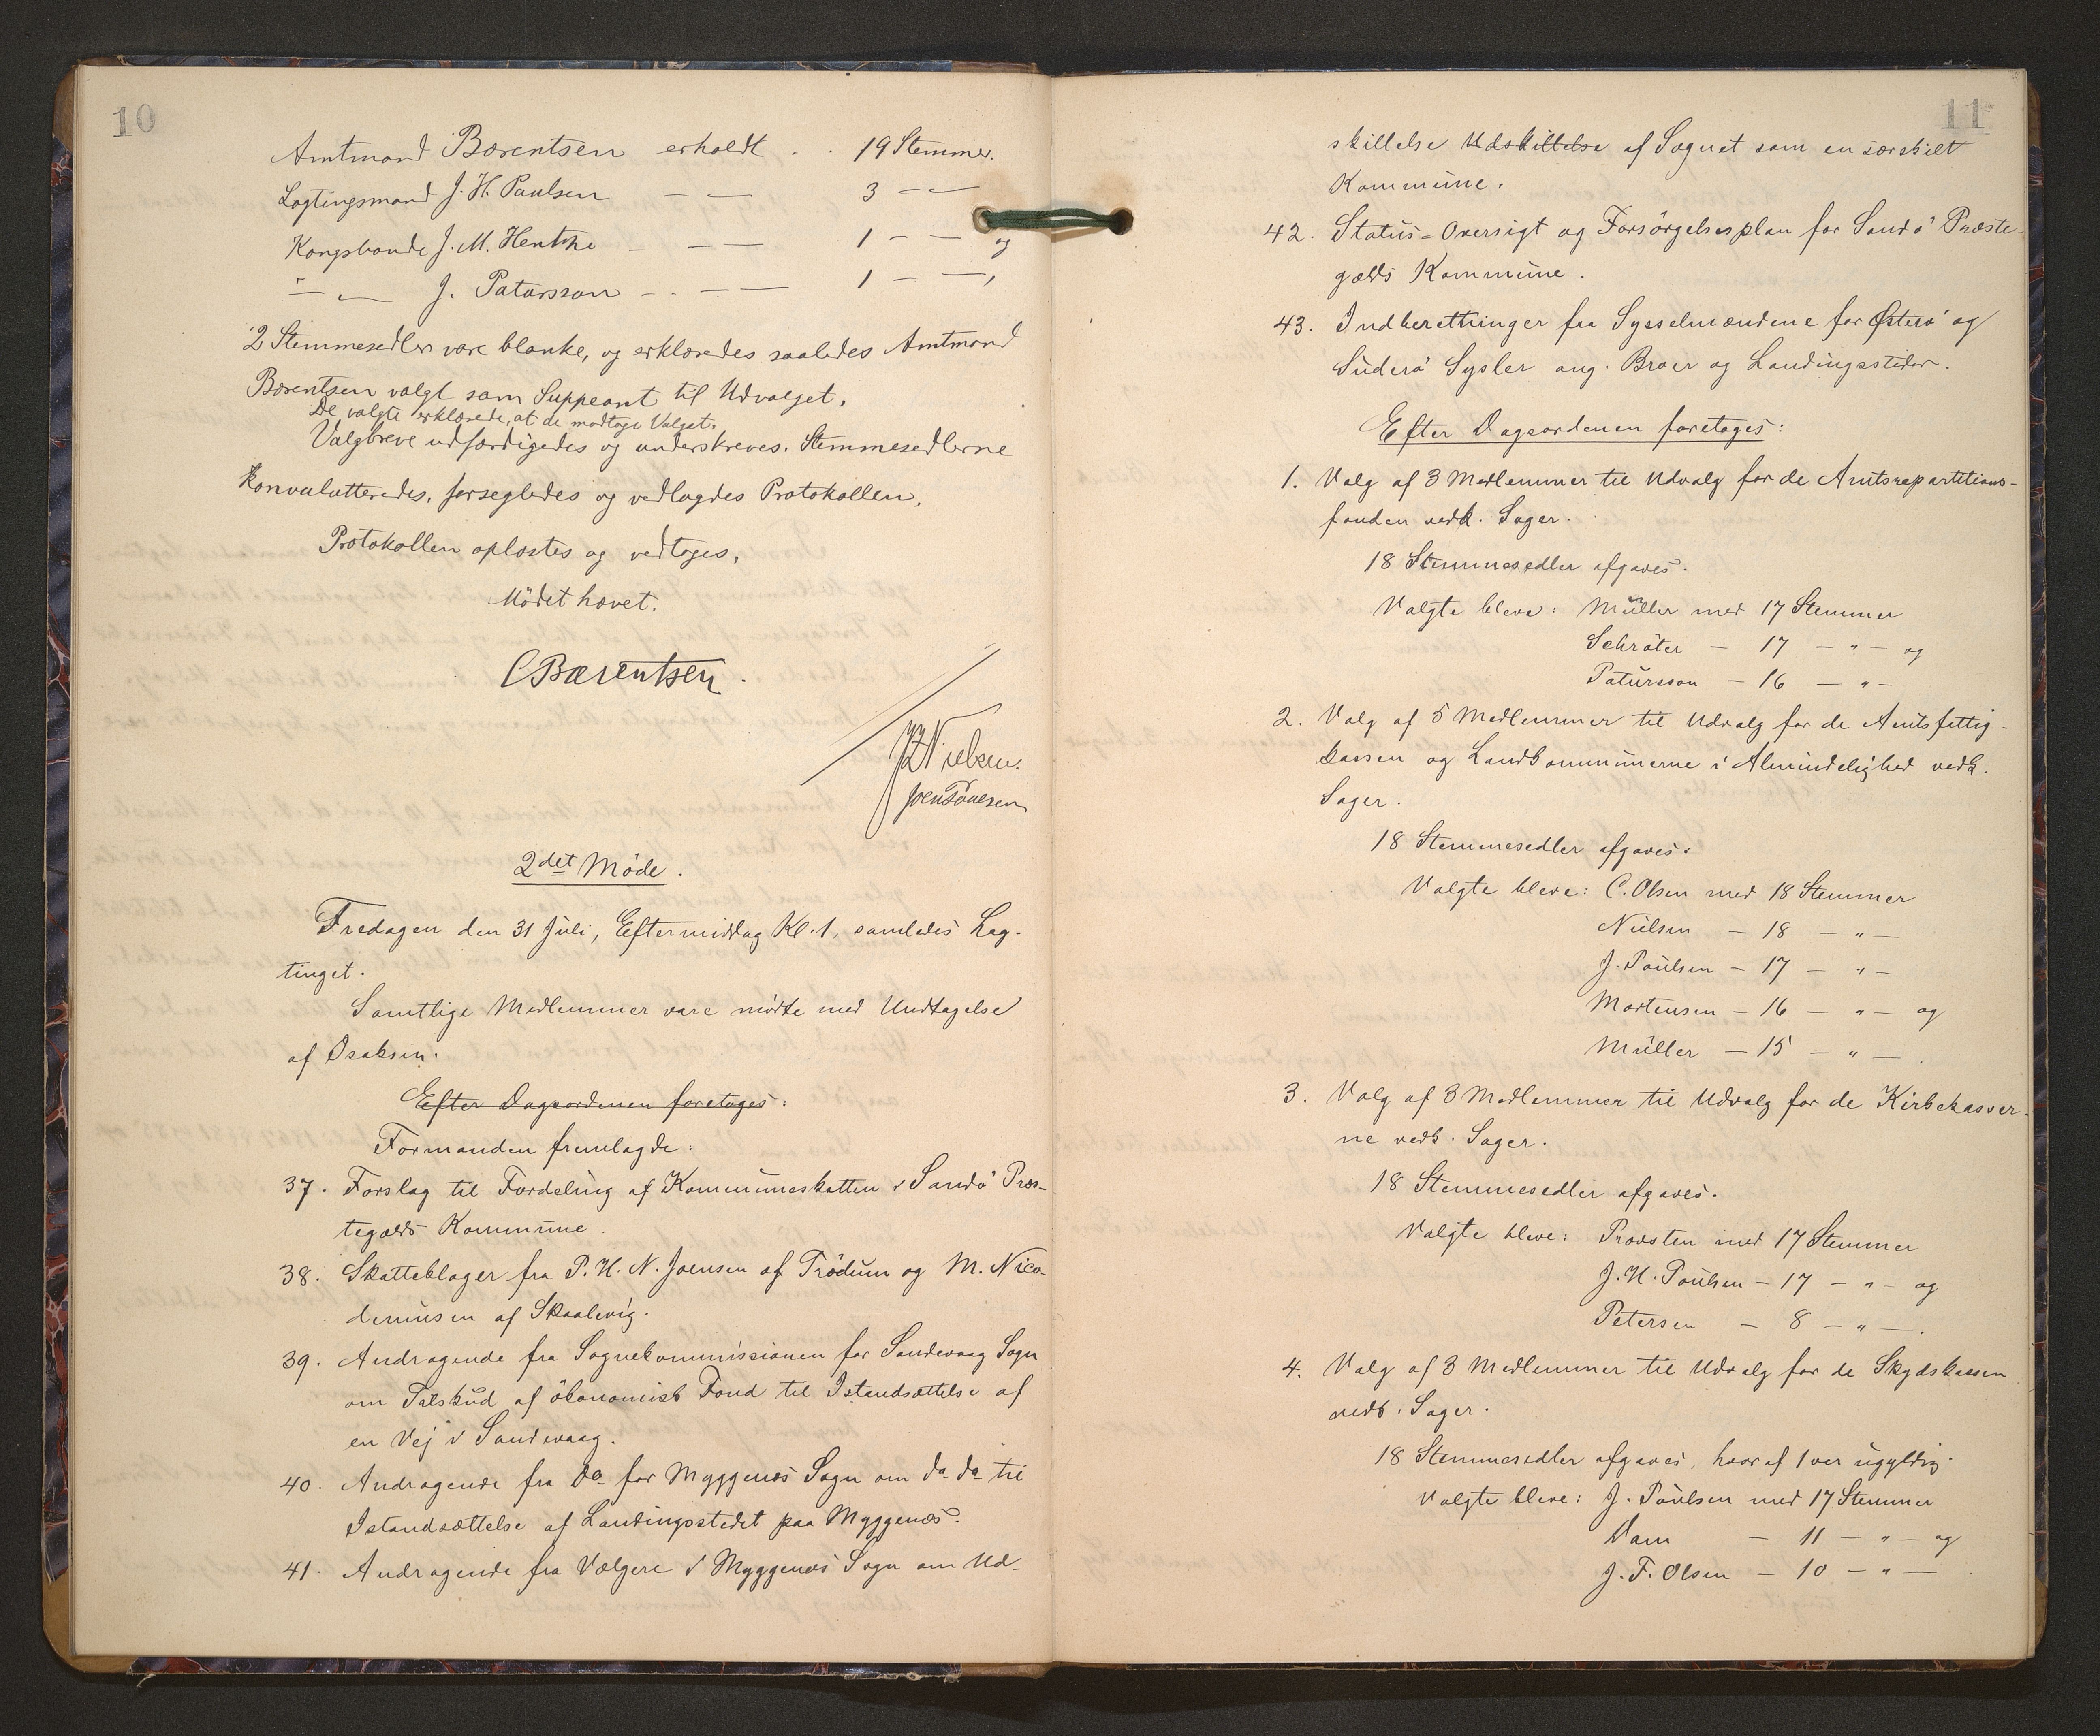 10
Amtmand Bærentsen erholdt . . 19 Stemmer.
Lagtingsmand J. H. Paulsen — — 3 — —
Kongsbonde J. M. Hentze — — — 1 — — og
— " — J. Patursson — — — 1 — —,
2 Stemmesedler vare blanke, og erklæredes saaledes Amtmand
Bærentsen valgt som Suppeant til Udvalget.
De valgte erklærede, at de modtoge Valget.
Valgbreve udfærdigedes og underskreves. Stemmesedlerne
konvolutteredes, forsegledes og vedlagdes Protokollen.
Protokollen oplæstes og vedtoges.
Mödet hævet.
C Bærentsen.
Nielsen.
Joen Poulsen
2det Möde.
Fredagen den 31 Juli, Eftermiddag Kl. 1, samledes Lag-
tinget.
Samtlige Medlemmer vare mödte med Undtagelse
af Isaksen.
Efter Dagsordenen foretoges:
Formanden fremlagde:
37. Forslag til Fordeling af Kommuneskatten i Sandö Præs-
tegælds Kommune.
38. Skatteklager fra P. H. N. Joensen af Trödum og M. Nico-
demusen af Skaalevig.
39. Andragende fra Sognekommissionen for Sandevaag Sogn
om Tilskud af ökonomisk Fond til Istandsættelse af
en Vej i Sandevaag.
40. Andragende fra Do for Myggenæs Sogn om do do til
Istandsættelse af Landingsstedet paa Myggenæs.
41. Andragende fra Vælgere i Myggenæs Sogn om Ud-
11
skillelse Udskillelse af Sognet som en særskilt
Kommune.
42. Status-Oversigt og Forsörgelsesplan for Sandö Præste-
gælds Kommune.
43. Indberetninger fra Sysselmændene for Österö og
Suderö Sysler ang. Broer og Landingssteder.
Efter Dagsordenen foretoges:
1. Valg af 3 Medlemmer til Udvalg for de Amtsrepartitions-
fonden vedk. Sager.
18 Stemmesedler afgaves.
Valgte bleve: Müller med 17 Stemmer
Schröter — 17 — " — og
Patursson — 16 — " —
2. Valg af 5 Medlemmer til Udvalg for de Amtsfattig-
kassen og Landkommunerne i Almindelighed vedk.
Sager.
18 Stemmesedler afgaves.
Valgte bleve: C. Olsen med 18 Stemmer
Nielsen — 18 — " —
J. Paulsen — 17 — " —
Mortensen — 16 — " — og
Müller — 15 — " — .
3. Valg af 3 Medlemmer til Udvalg for de Kirkekasser-
ne vedk. Sager.
18 Stemmesedler afgaves.
Valgte bleve: Provsten med 17 Stemmer
J. H. Poulsen — 17 — " — og
Petersen — 8 — " — .
4. Valg af 3 Medlemmer til Udvalg for de Skydskassen
vedk. Sager.
18 Stemmesedler afgaves, hvoraf 1 var ugyldig.
Valgte bleve: J. Paulsen med 17 Stemmer
Dam — 11 — " — og
J. F. Olsen — 10 — " —